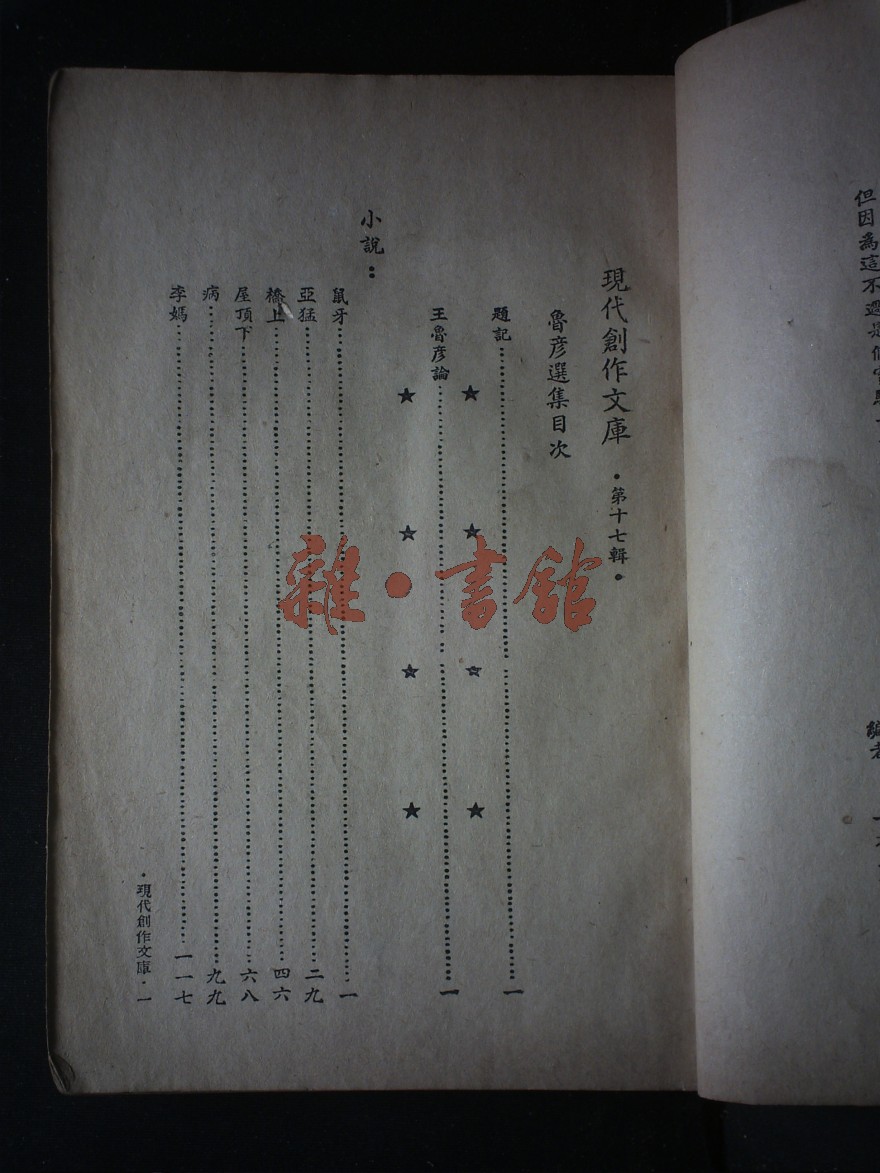 現代創作文庫 • 第十七輯 •
魯彥選集目次
題記 一
王魯彥論 一
小說：
鼠牙 一
亞猛 二九
橋上 四六
屋頂下 六八
病 九九
李媽 一一七
• 現代創作文庫 • 一
但因為這不過是個
編者
雜•書館